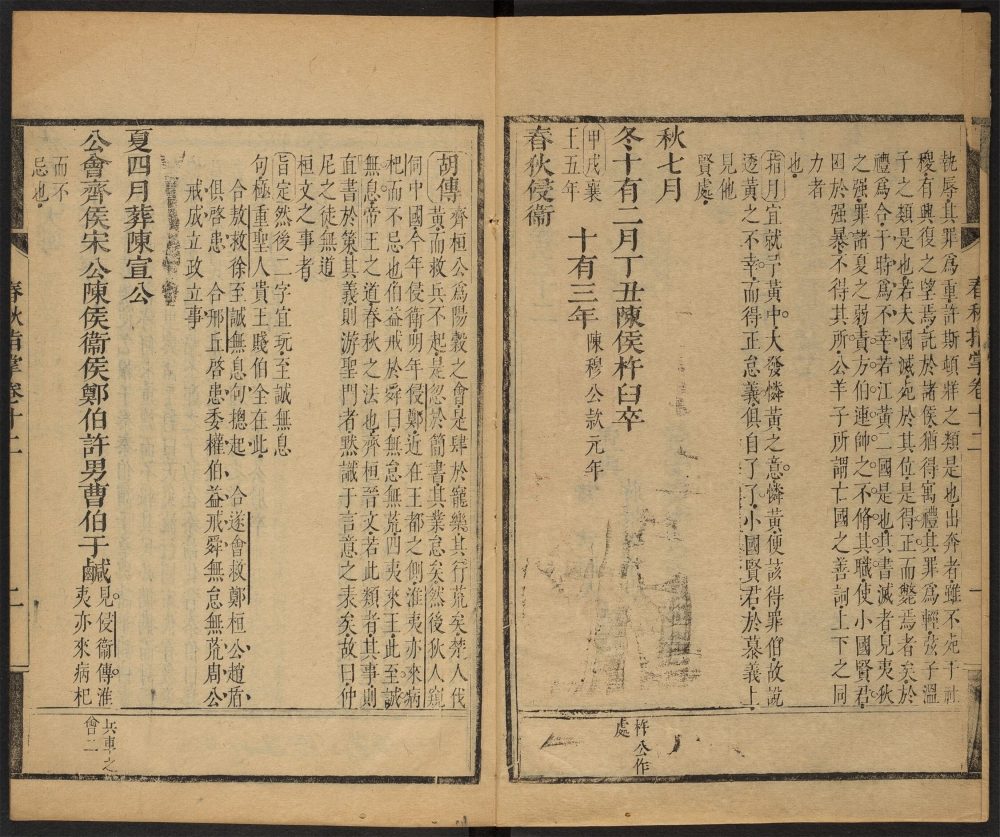 執辱其罪爲重許斯頓牂之類是也出奔者雖不死于社
稷有興復之望焉託於諸侯猶得寓禮其罪爲輕弦子溫
子之類是也若夫國滅死於其位是得正而斃焉者矣於
禮爲合于時爲不幸若江黃二國是也其書滅者見夷狄
之强罪諸夏之弱責方伯連帥之不脩其職使小國賢君
困於强暴不得其所公羊子所謂亡國之善詞上下之同
力者
也
指月宜就予黃中大發憐黃之意憐黃便該得罪伯故說
透黃之不幸而得正怠義俱自了了小國賢君於慕義上
見他
賢處
秋七月
冬十有二月丁丑陳侯杵臼卒
杵公作
處
甲戌襄
王五年
十有三年
陳穆公款元年
春狄侵衞
春秋指掌卷十二
一
胡傳
齊桓公爲陽穀之會是肆於寵樂其行荒矣楚人伐
黃而救兵不起是忽於簡書其業怠矣然後狄人窺
伺中國今年侵衞明年侵鄭近在王都之側淮夷亦來病
杞而不忌也伯益戒於舜曰無怠無荒四夷來王此至誠
無息帝王之道春秋之法也齊桓晉文若此類者其事則
直書於策其義則游聖門者默識于言意之表矣故曰仲
尼之徒無道
桓文之事者
旨定然後二字宜玩至誠無息
句極重聖人貴王賤伯全在此
合敖救徐至誠無息句總起
合遂會救鄭桓公趙盾
俱啓患
合邢丘啓患委權伯益戒舜無怠無荒周公
戒成立政立事
夏四月葬陳宣公
公會齊侯宋公陳侯衞侯鄭伯許男曹伯于鹹
見侵衞傳淮
夷亦來病杞
兵車之
會二
而不
忌也
春秋指掌卷十二
二